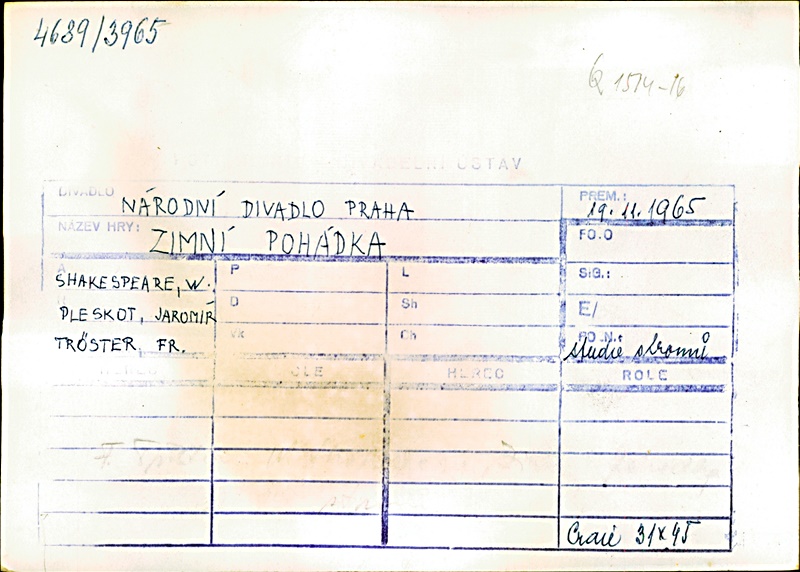 4689/3965
Q 1514-16
ÚSTAV
DIVADLO NÁRODNÍ DIVADLO PRAHA
PREM.: 19. 11. 1965
NÁZEV HRY: ZIMNÍ POHÁDKA
FO.O
A P L SIG.:
SHAKESPEARE, W.
D Sh E/
PLESKOT, JAROMÍR
vk Ch PO.N.:
TRÖSTER, FR. studie stromů
HEREC ROLE HEREC ROLE
31x45